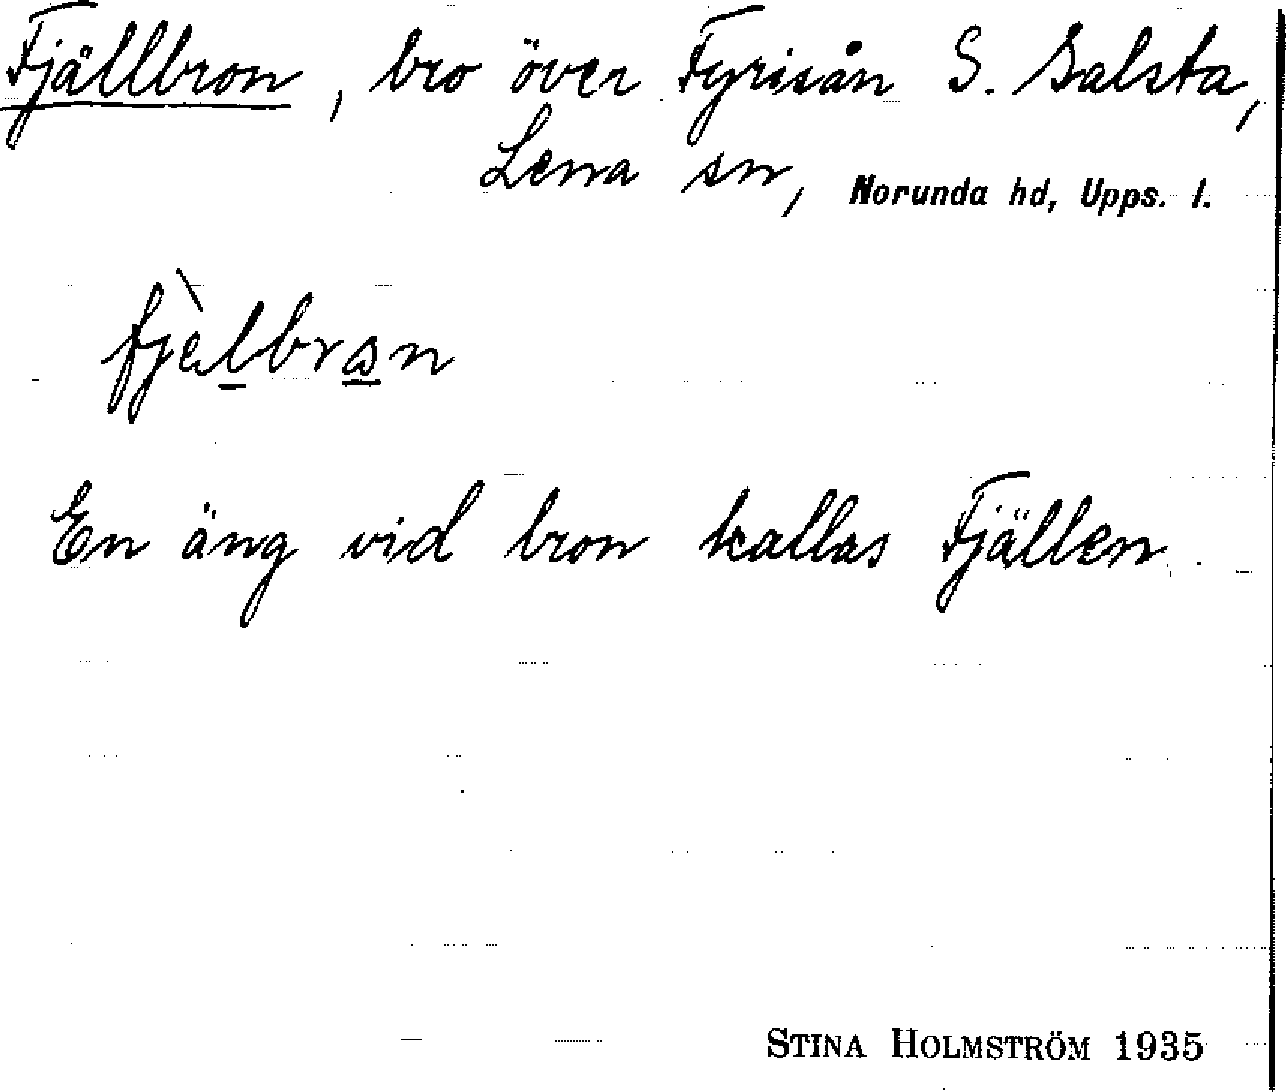 Fjällbron, bro över Fyrisån S. Salsta,
Lena sn, Norunda hd, Upps. l.
fjèlbran
En äng vid bron kallas Fjällen.
STINA HOLMSTRÖM 1935